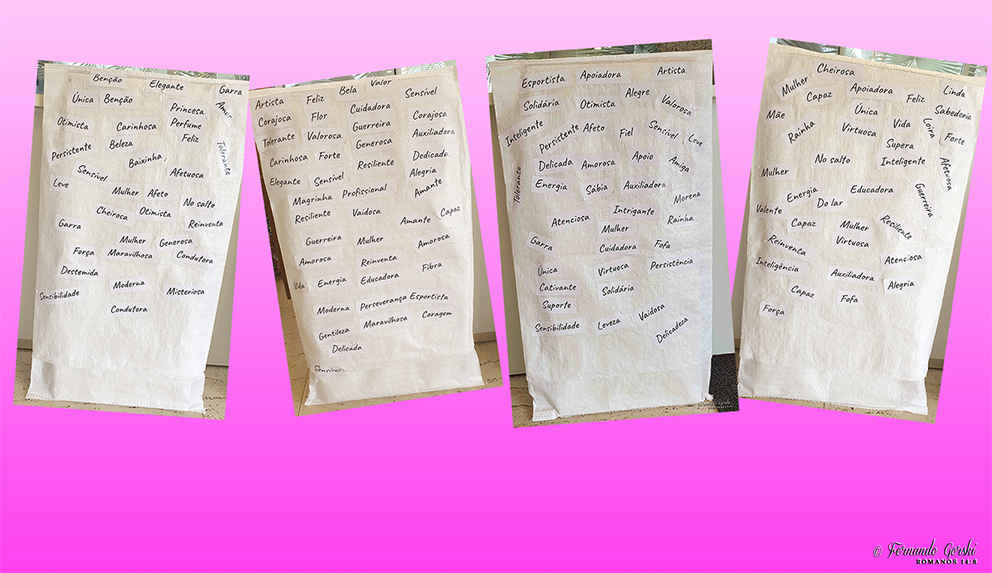 Benção Elegante Garra
Única Benção Princesa Amor
Otimista Carinhosa Perfume
Persistente Beleza Feliz
Baixinha Tolerante
Sensível Afetuosa
Leve Mulher Afeto No salto
Cheirosa Otimista
Garra Reinventa
Mulher Generosa
Força Maravilhosa Condutora
Destemida
Moderna
Sensibilidade Misteriosa
Condutora
Artista Feliz Bela Valor Sensível
Corajosa Flor Cuidadora Corajosa
Tolerante Valorosa Guerreira Auxiliadora
Generosa
Carinhosa Forte Resiliente Dedicada
Elegante Sensível Alegria
Magrinha Profissional Amante
Resiliente Vaidosa Amante Capaz
Guerreira Mulher Amorosa
Amorosa Reinventa
Vida Energia Educadora Fibra
Moderna Perseverança Esportista
Gentileza Maravilhosa Coragem
Delicada
Sensível
Esportista Apoiadora Artista
Solidária Otimista Alegre Valorosa
Inteligente Persistente Afeto Fiel Sensível Leve
Delicada Amorosa Apoio Amiga
Tolerante Energia Sábia Auxiliadora
Morena
Atenciosa Intrigante Rainha
Mulher
Garra Cuidadora Fofa
Única Virtuosa Persistência
Cativante Solidária
Suporte
Sensibilidade Leveza Vaidosa
Delicadeza
Mulher Cheirosa
Capaz Apoiadora Feliz Linda
Mãe Única Vida Sabedoria
Rainha Virtuosa Loira Forte
Supera
No salto Inteligente Afetuosa
Mulher
Energia Educadora Guerreira
Valente Do lar
Capaz Mulher Resiliente
Reinventa Virtuosa
Inteligência Atenciosa
Auxiliadora Alegria
Capaz Fofa
Força
© Fernando Gorski
ROMANOS 14:8